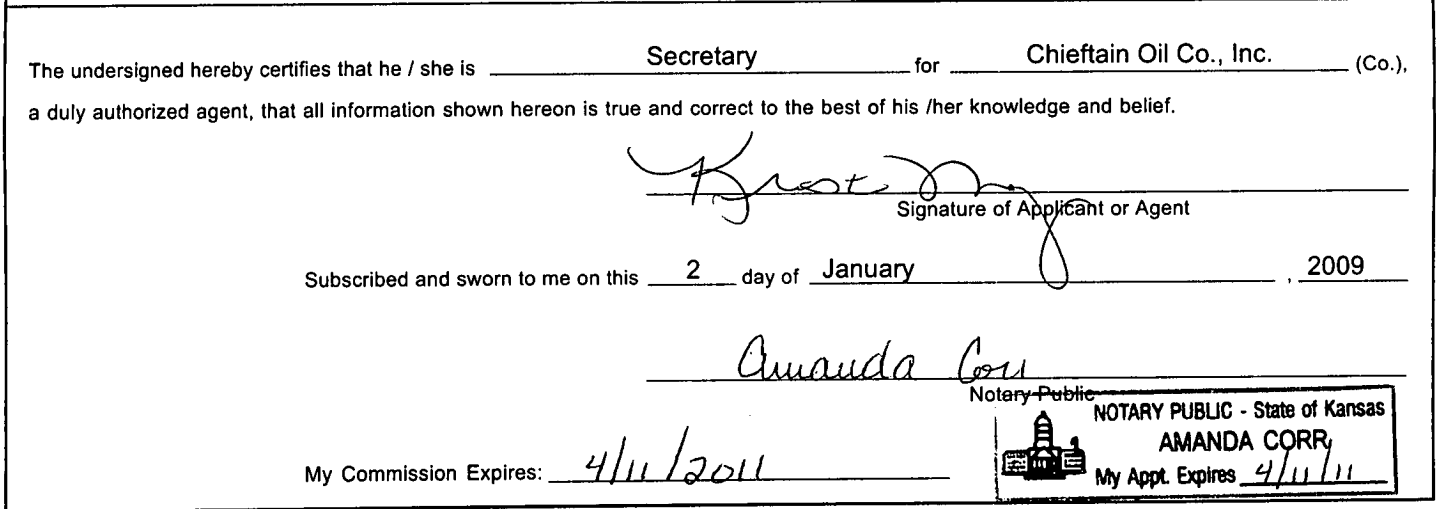 The undersigned hereby certifies that he / she is Secretary for Chieftain Oil Co., Inc. (Co.),
a duly authorized agent, that all information shown hereon is true and correct to the best of his /her knowledge and belief.
Signature of Applicant or Agent
Subscribed and sworn to me on this 2 day of January , 2009
Amanda Corr
Notary Public
NOTARY PUBLIC - State of Kansas
AMANDA CORR
My Commission Expires: 4/11/2011
My Appt. Expires 4/11/11